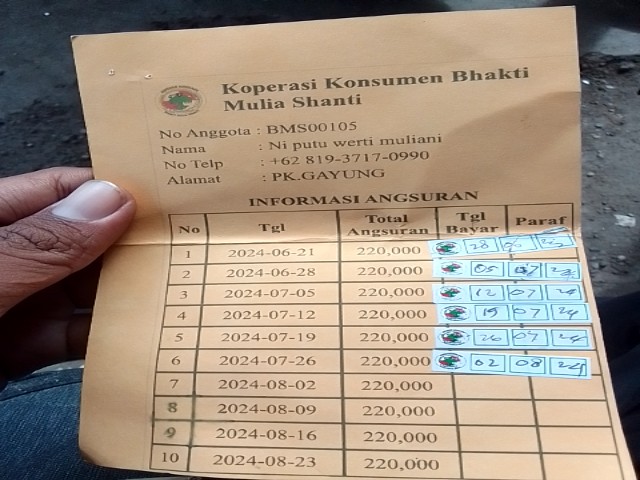 Koperasi Konsumen Bhakti
Mulia Shanti
No Anggota : BMS00105
Nama : Ni putu werti muliani
No Telp : +62 819-3717-0990
Alamat : PK.GAYUNG
INFORMASI ANGSURAN
No Tgl Total Angsuran Tgl Bayar Paraf
1 2024-06-21 220,000 28
2 2024-06-28 220,000 05 07 24
3 2024-07-05 220,000 12 07 24
4 2024-07-12 220,000 19 07 24
5 2024-07-19 220,000 26 07 24
6 2024-07-26 220,000 02 08 24
7 2024-08-02 220,000
8 2024-08-09 220,000
9 2024-08-16 220,000
10 2024-08-23 220,000